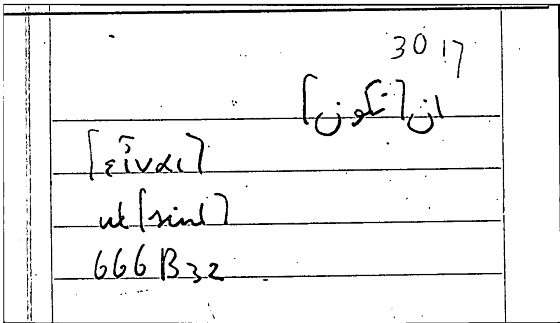 30 17
ان [تكون]
[εἶναι]
ut [sint]
666 B 32